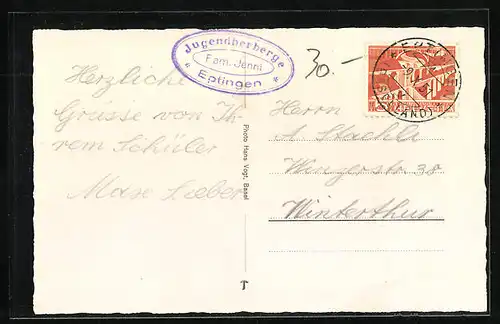 Jugendherberge
Fam. Jenni
* Eptingen *
30.-
EPTINGEN
Herzliche
Grüsse von Ih-
rem Schüler
Max Lieber
Photo Hans Vogt, Basel
Herrn
A Staehli
30
Winterthur